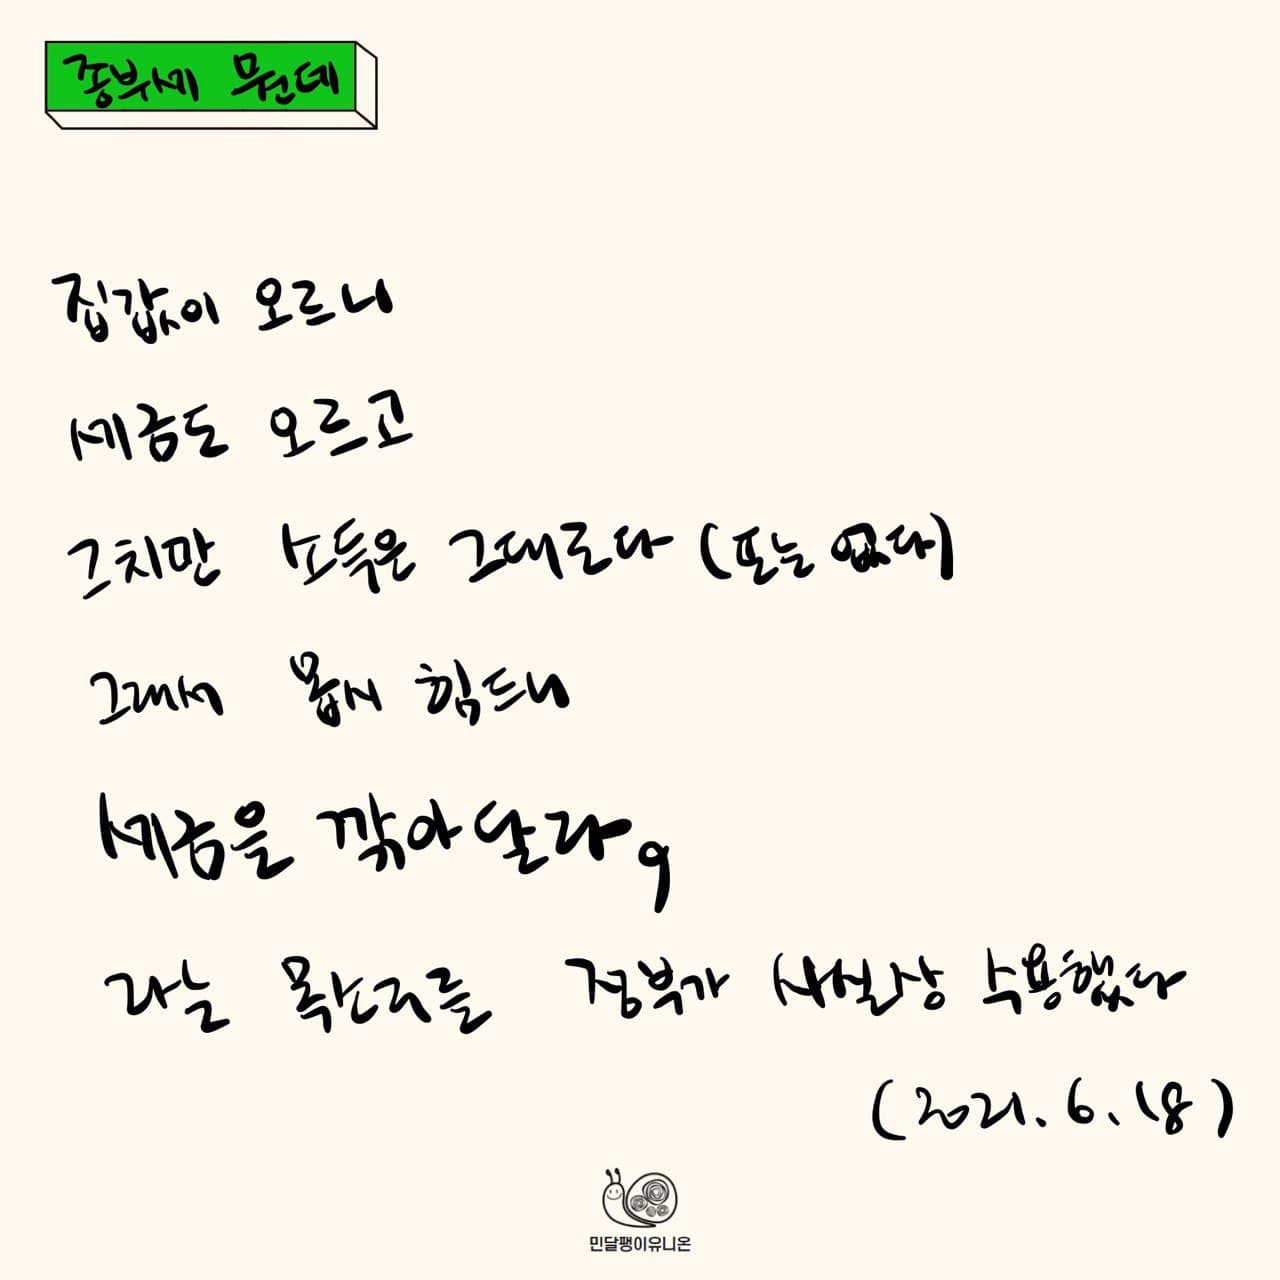 종부세 뭔데
집값이 오르니
세금도 오르고
그치만 소득은 그대로다 (또는 없다)
그래서 몹시 힘드니
세금을 깎아달라,
라는 목소리를 정부가 사실상 수용했다
(2021.6.18)
민달팽이유니온